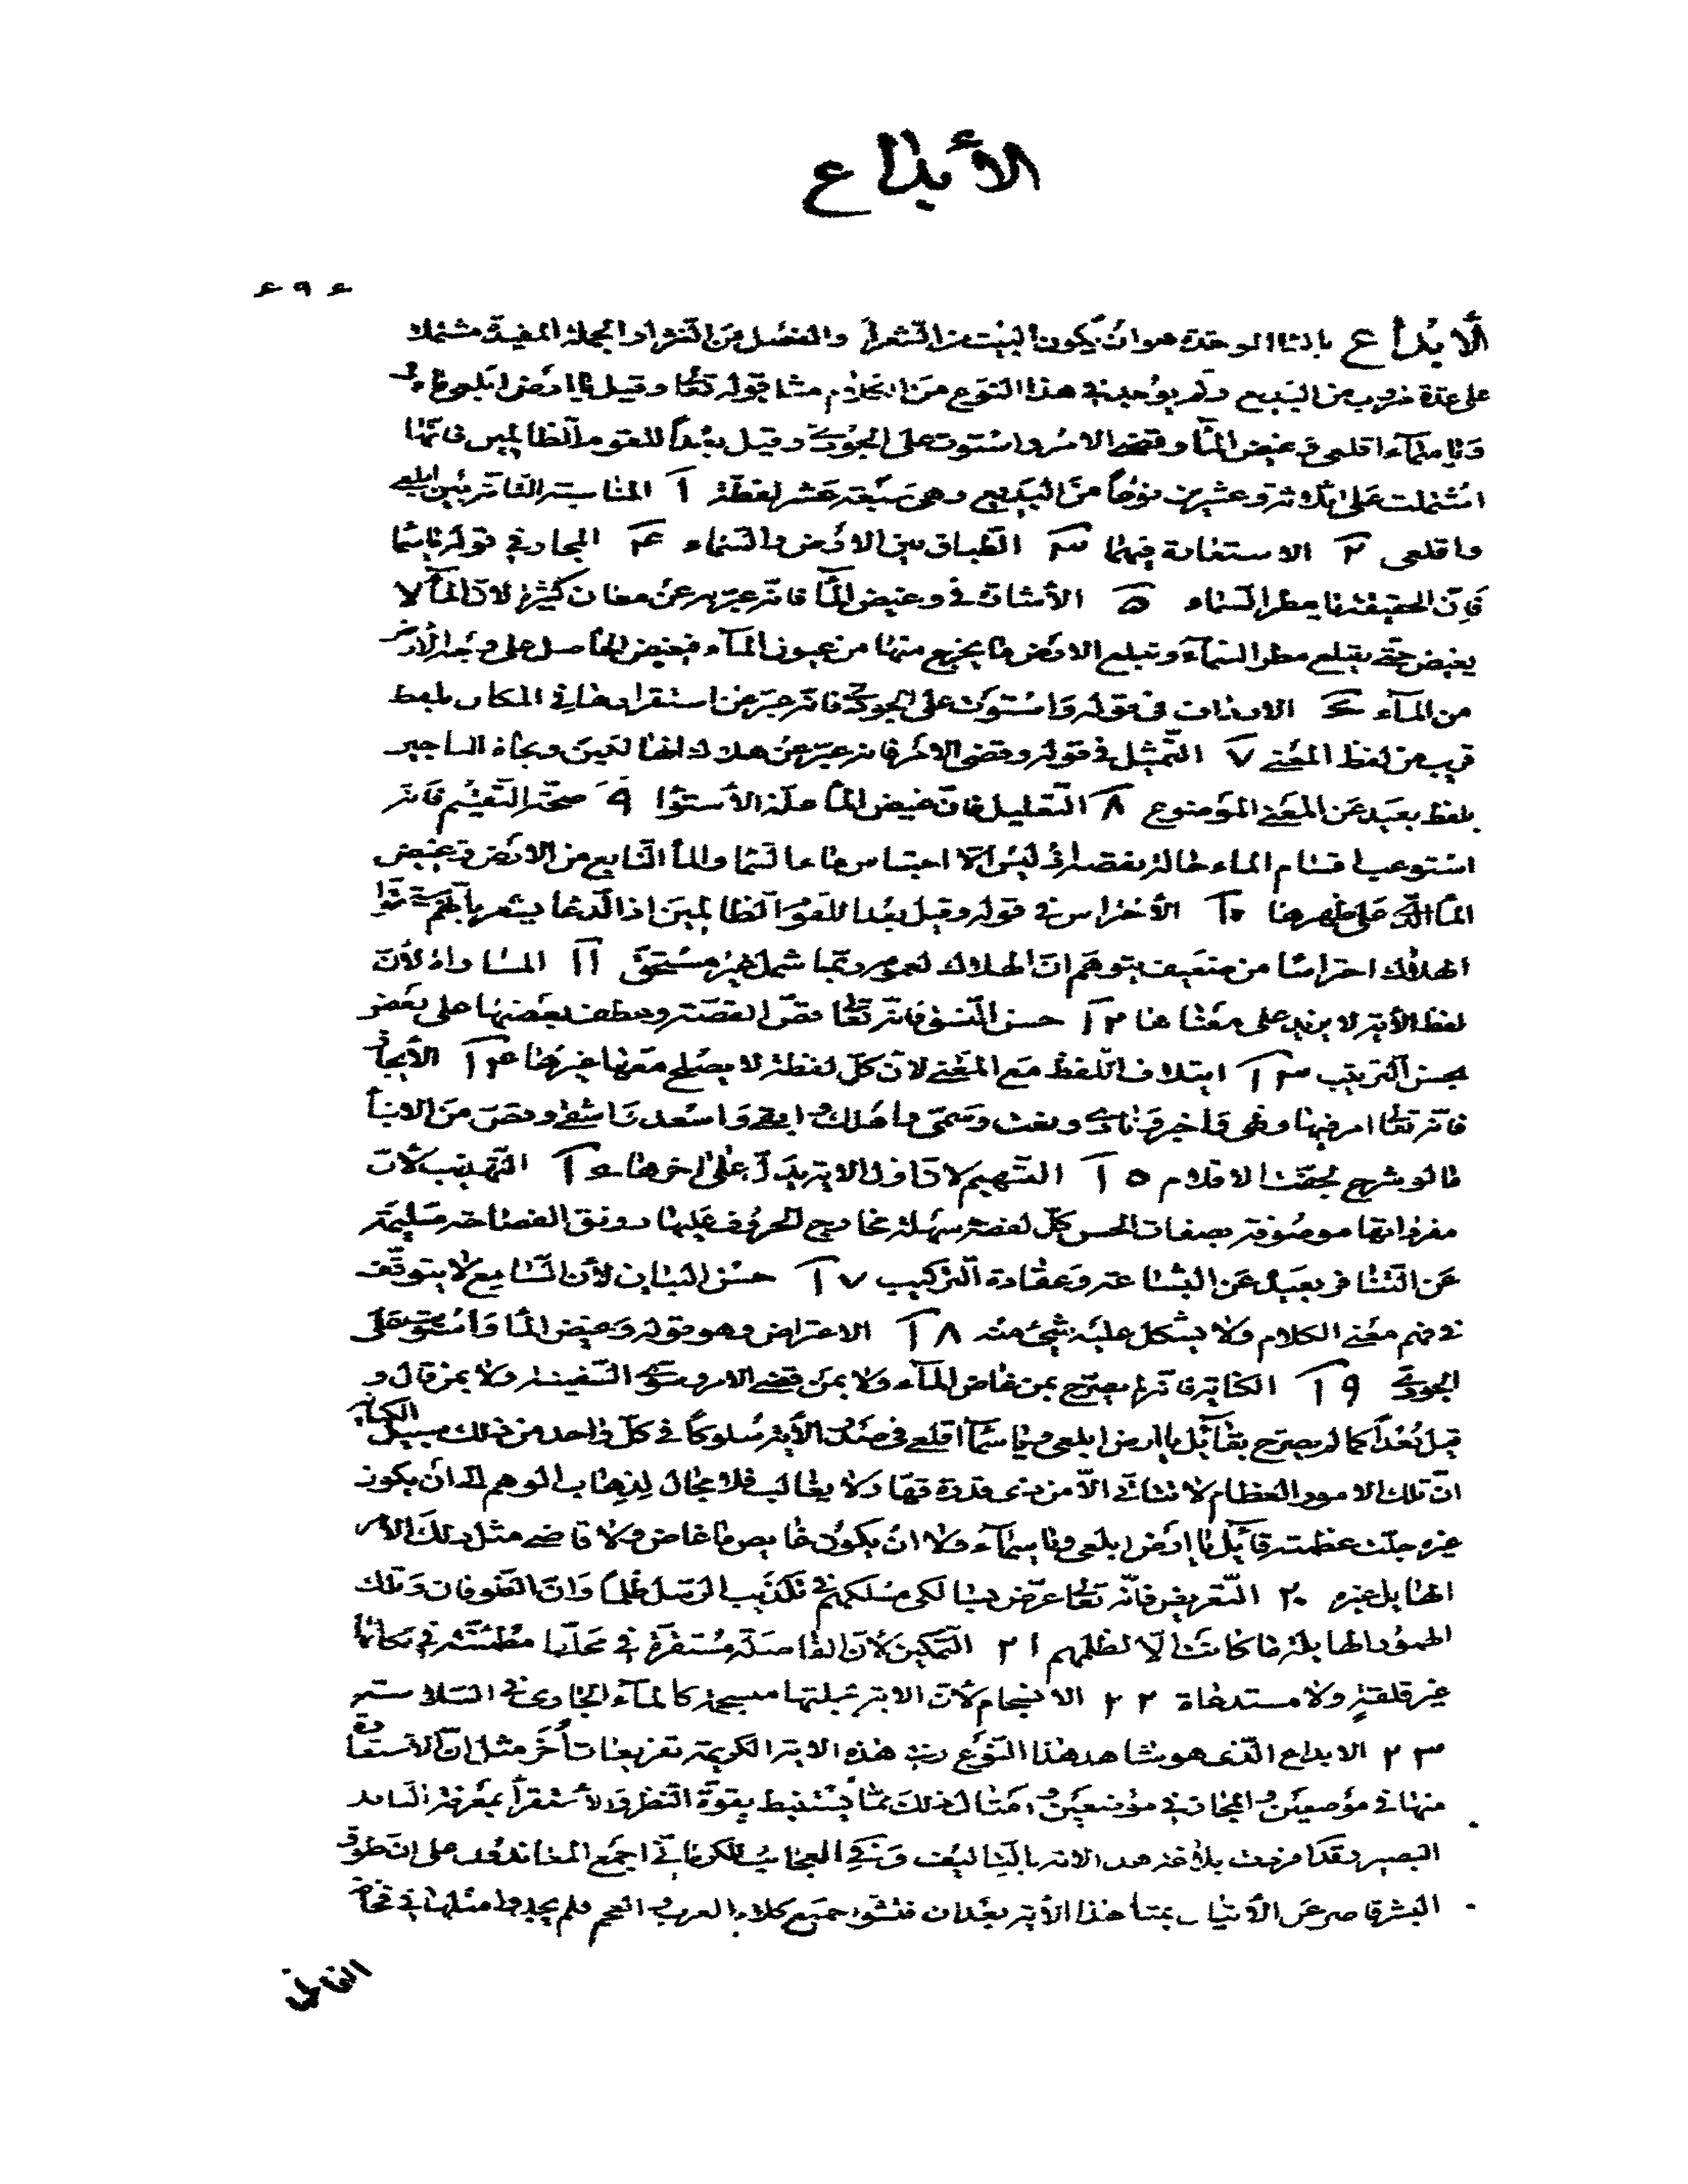 الأبداع
٤٩٤
الابداع بالباء الموحدة هو ان يكون البيت من الشعر او الفصل من النثر او الجملة المفيدة مشتملا
على عدة ضروب من البديع ولم يوجد في هذا النوع من الكلام مثل قوله تعا وقيل يا ارض ابلعي ماءك
ويا سماء اقلعي وغيض الماء وقضى الامر واستوت على الجودي وقيل بعدا للقوم الظالمين فانها
اشتملت على ثلاثة وعشرين نوعا من البديع وهي سبعة عشر لفظة ١ المناسبة التامة بين ابلعي
واقلعي ٢ الاستعارة فيهما ٣ الطباق بين الارض والسماء ٤ المجاز في قوله يا سماء
فان الحقيقة يا مطر السماء ٥ الأشارة في وغيض الماء فانه عبر به عن معان كثيرة لان الماء لا
يغيض حتى يقلع مطر السماء وتبلع الارض ما يخرج منها من عيون الماء فيغيض الحاصل على وجه الارض
من الماء ٦ الارداف في قوله واستوت على الجودي فانه عبر عن استقرارها في المكان بلفظ
قريب من لفظ المعنى ٧ التمثيل في قوله وقضى الامر فانه عبر عن هلاك الهالكين ونجاة الناجين
بلفظ بعيد عن المعنى الموضوع ٨ التعليل فان غيض الماء علة الأستواء ٩ صحة التقسيم فانه
استوعب اقسام الماء حالة نقصه اذ ليس الا احتباس ماء السماء والماء النابع من الارض وغيض
الماء الذي على ظهرها ١٠ الأحتراس في قوله وقيل بعدا للقوم الظالمين اذ الدعاء يشعر بانهم مستحقوا
الهلاك احتراسا من ضعيف يتوهم ان الهلاك لعمومه ربما شمل غير مستحق ١١ المساواة لأن
لفظ الأية لا يزيد على معناها ١٢ حسن النسق فانه تعا قص القصة وعطف بعضها على بعض
بحسن الترتيب ١٣ ايتلاف اللفظ مع المعنى لان كل لفظة لا يصلح معها غيرها ١٤ الأيجاز
فانه تعا امر فيها ونهى واخبر ونادى ونعت وسمى واهلك وابقى واسعد واشقى وقص من الانباء
ما لو شرح لجفت الاقلام ١٥ التسهيم لان اول الاية يدل على اخرها ١٦ التهذيب لأن
مفرداتها موصوفة بصفات الحسن كل لفظة سهلة مخارج الحروف عليها رونق الفصاحة سليمة
عن التنافر بعيد عن البشاعة وعقادة التركيب ١٧ حسن البيان لأن السامع لا يتوقف
في فهم معنى الكلام ولا يشكل عليه شيء منه ١٨ الاعتراض وهو قوله وغيض الماء واستوت على
الجودي ١٩ الكناية فانه لم يصرح بمن غاض الماء ولا بمن قضى الامر وسوى السفينة ولا بمن قال و
قيل بعدا كما لم يصرح بقائل يا ارض ابلعي ويا سماء اقلعي في صدر الأية سلوكا في كل واحد من ذلك سبيل الكناية
ان تلك الامور العظام لا تتاتى الا من ذي قدرة قهار لا يغالب فلا مجال لذهاب الوهم الى ان يكون
غيره جلت عظمته قائل يا ارض ابلعي ويا سماء ولا ان يكون غايض ما غاض ولا قاضي مثل ذلك الأمر
الهايل غيره ٢٠ التعريض فانه تعا عرض بسالكى مسلكهم في تكذيب الرسل ظلما وان الطوفان وتلك
الصور الهايلة ما كانت الا لظلمهم ٢١ التمكين لأن الفاصلة مستقرة في محلها مطمئنة في مكانها
غير قلقة ولا مستدعاة ٢٢ الانسجام لأن الاية بجملتها منسجمة كالماء الجاري في السلاسة
٢٣ الابداع الذي هو شاهد هذا النوع وفي هذه الاية الكريمة تفريعات أخر مثل ان الاستعارة
منها في موضعين والمجاز في موضعين وامثال ذلك مما يستنبط بقوة النظر والأستقراء بمعرفة الناقد
البصير وقد افردت بلاغة هذه الاية بالتاليف وفي العجايب للكرماني اجمع المعاندون على ان طوق
البشر قاصر عن الأتيان بمثل هذا الأية بعد ان فتشوا جميع كلام العرب والعجم فلم يجدوا مثلها في فخامة